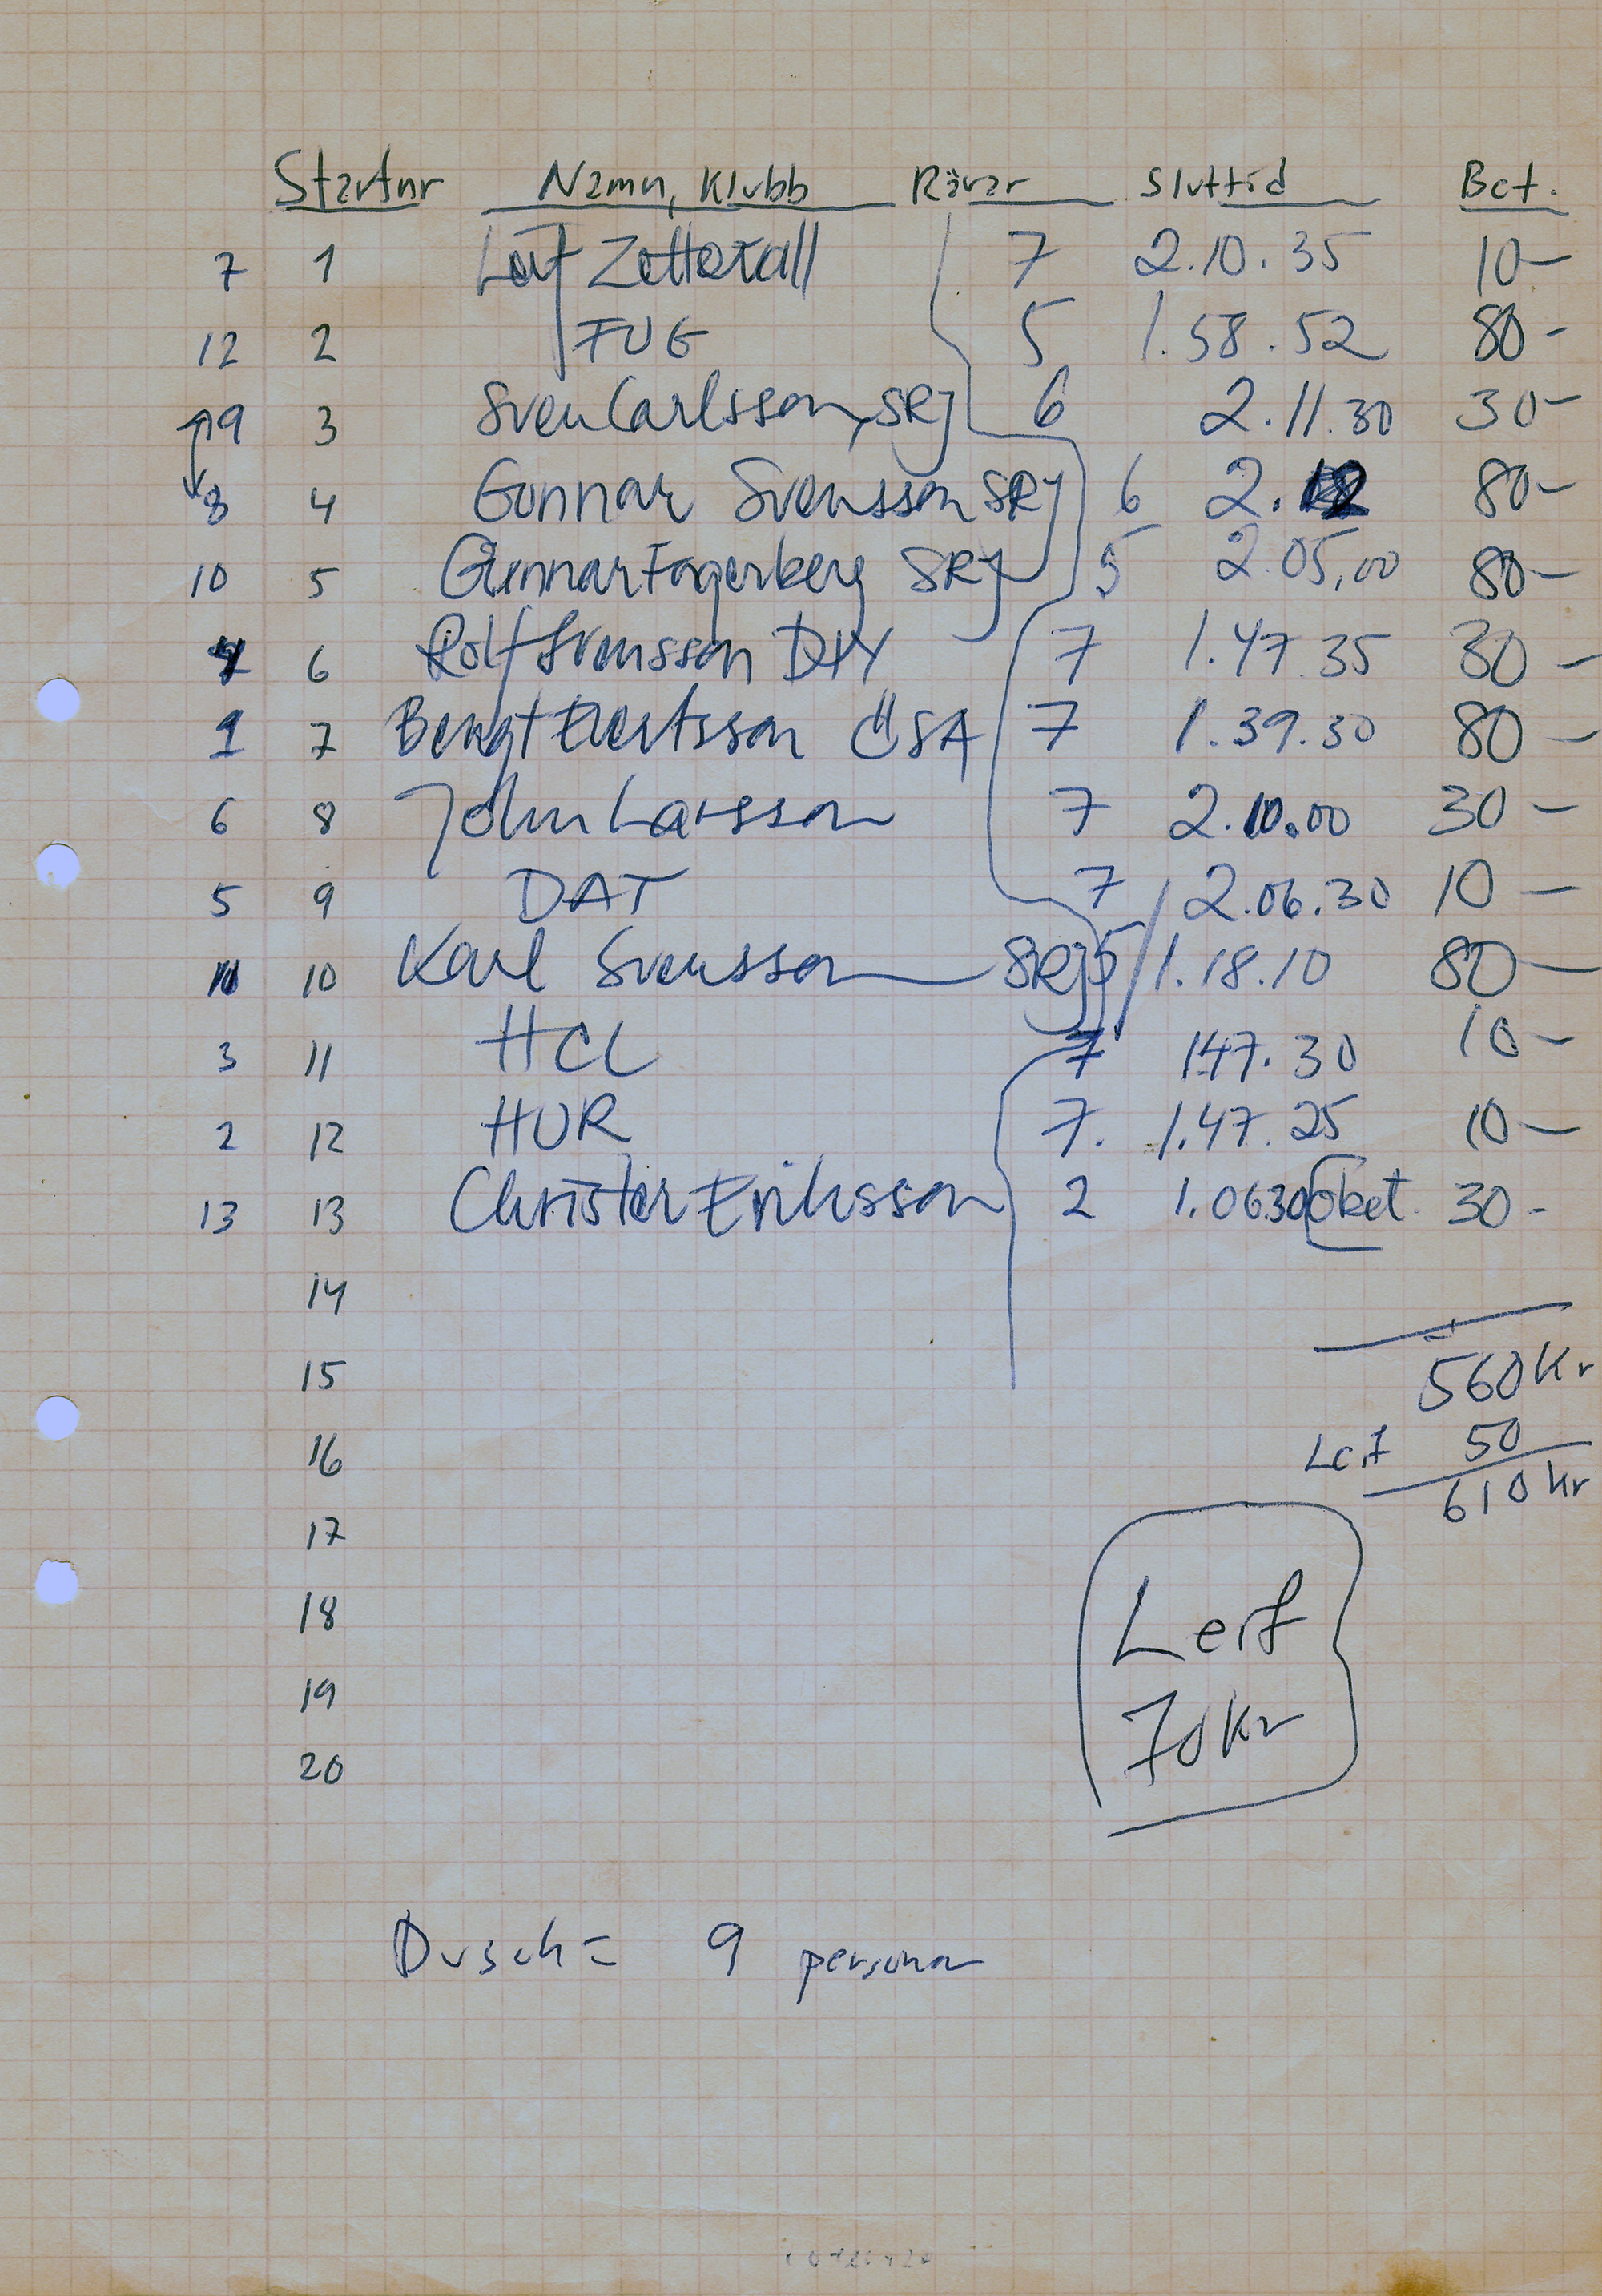 Startnr Namn, Klubb Rävar Sluttid Bet.
7 1 Leif Zettervall 7 2.10.35 10-
12 2 FUG 5 1.58.52 80-
9 3 Sven Carlsson, SRJ 6 2.11.30 30-
8 4 Gunnar Svensson SRJ 6 2.12 80-
10 5 Gunnar Fagerberg SRJ 5 2.05,00 80-
4 6 Rolf Svensson 7 1.47.35 30-
1 7 Bengt Evertsson ÖSA 7 1.39.30 80-
6 8 John Larsson 7 2.10.00 30-
5 9 DAT 7 2.06.30 10-
11 10 Karl Svensson SRJ 5 1.18.10 80-
3 11 HCL 7 1.47.30 10-
2 12 HUR 7. 1.47.25 10-
13 13 Christer Eriksson 2 1.06.30 obet. 30-
14
15 560 Kr
16 Leif 50
610 kr
17
18 Leif
19
70 kr
20
Dusch = 9 personer